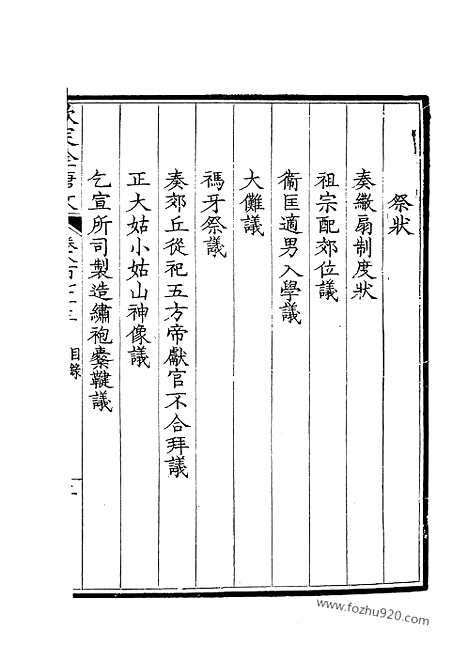 祭狀
奏繖扇制度狀
祖宗配郊位議
衞匡適男入學議
大儺議
禡牙祭議
奏郊丘從祀五方帝獻官不合拜議
正大姑小姑山神像議
乞宣所司製造繡袍櫜鞬議
目錄
www.fozhu920.com